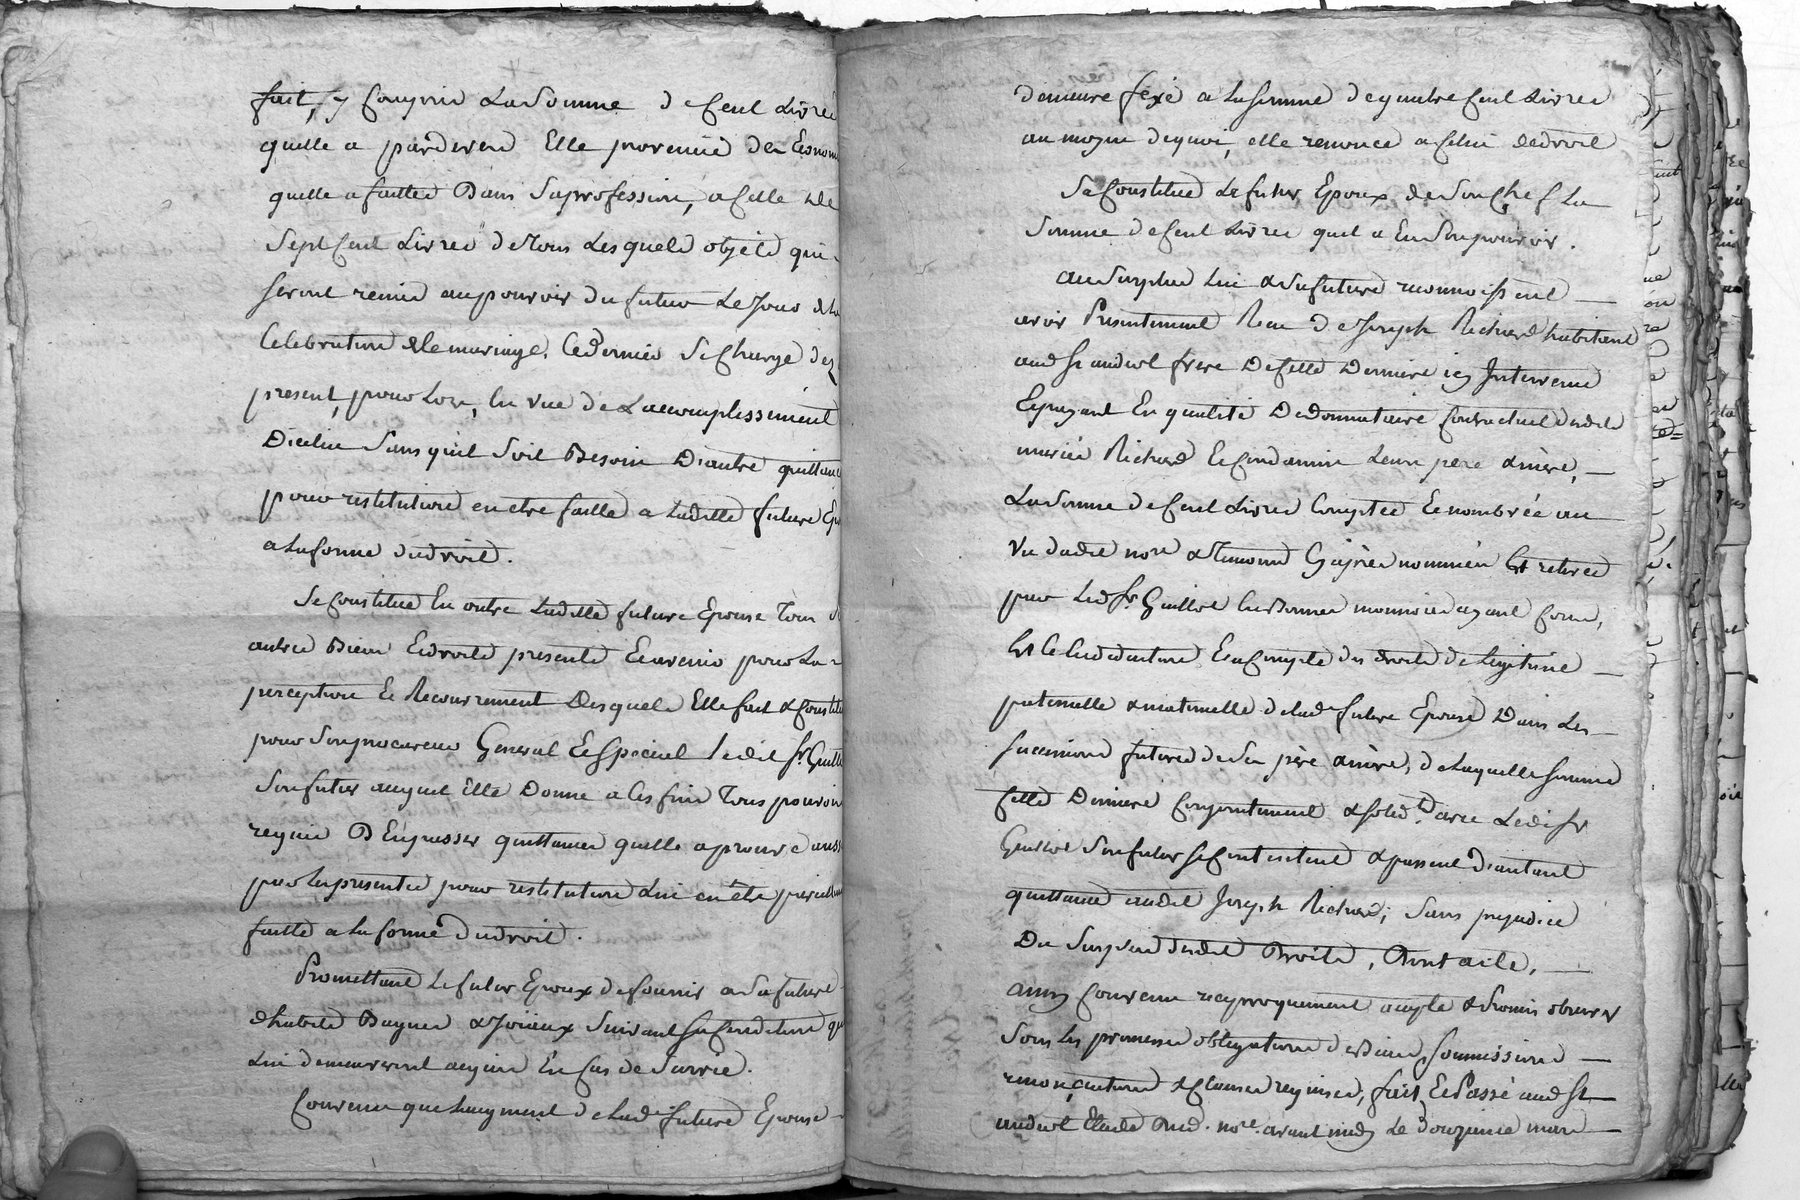 fait, y Compris La Somme de Cent Livres
quelle a pardevers Elle provenüe des Econom
quelle a faittes Dans Sa profession, a Celle de
Sept Cent Livres de tous Lesquels objets qui
Seront remis au pouvoir du futur Le Jour de la
Celebration de le mariage. Ce dernier Se Charge dez
present, pour Lors, En vue de Laccomplissement
Dicelui Sans quil Soit Besoin Dautre quittance
pour restitution en etre faitte a Laditte future Ep
a La forme du droit.
Se Constitue En outre Laditte future Epouse Tous
autres Biens Et droits presents Et avenir pour La
perception Et Recouvrement Desquels Elle fait & Constitue
pour Son procureur General Et Special Ledit Sr. Guill
Son futur auquel Elle Donne a Ces fins Tous pouvoirs
requis D'En passer quittances quelle aprouve auss
par Les presentes pour restitution Lui en être pareillem
faitte a La forme du droit.
Promettant Le futur Epoux de fournir a Sa future
d'habits Bagues & Joïaux Suivant Sa Condition qu
Lui demeureront acquis En Cas de Survie.
Convenu que Laugment de Lad. future Epouse
demeure féxé a La Somme de quatre Cent Livres
au moyen de quoi, elle renonce a Celui de droit
Se Constitue Le futur Epoux de Son Chef La
Somme de Cent Livres quil a En Son pouvoir.
au Surplus Lui & Sa future reconnoissent
avoir Presentement Recu de Joseph Richard habitant
aud St andiol frere De Cette Derniere icy Intervenu
Et payant En qualité De Donnataire Contractuel dudit
mariés Richard Et Gondamin Leurs pere & mere,
La Somme de Cent Livres Comptée Et nombrée au
Vu dudit nore & Temoins Cy après nommés Et retirée
par Led Sr. Guillot En Bonnes monnoies ayant Cours,
Et Ce En deduction Et a Compte des droits de Legitime
paternelle & maternelle de Lad. future Epouse Dans Les
Successions futures de Ses père & mère, de Laquelle Somme
Cette Derniere Conjointement & Solid.t avec Ledit Sr
Guillot Son futur Se Contentent & passent Dautant
quittance audit Joseph Richard; Sans prejudice
Du Surplus desdit Droits, Dont acte,
ainsy Convenu reciproquement accepté & Promis observer
Sous Les promesses obligations de Biens, Soumissions
renonciations & Clauses requises, fait, Et Passé aud St
andiol Etude Dud. nore. avant midy Le Douzieme mars